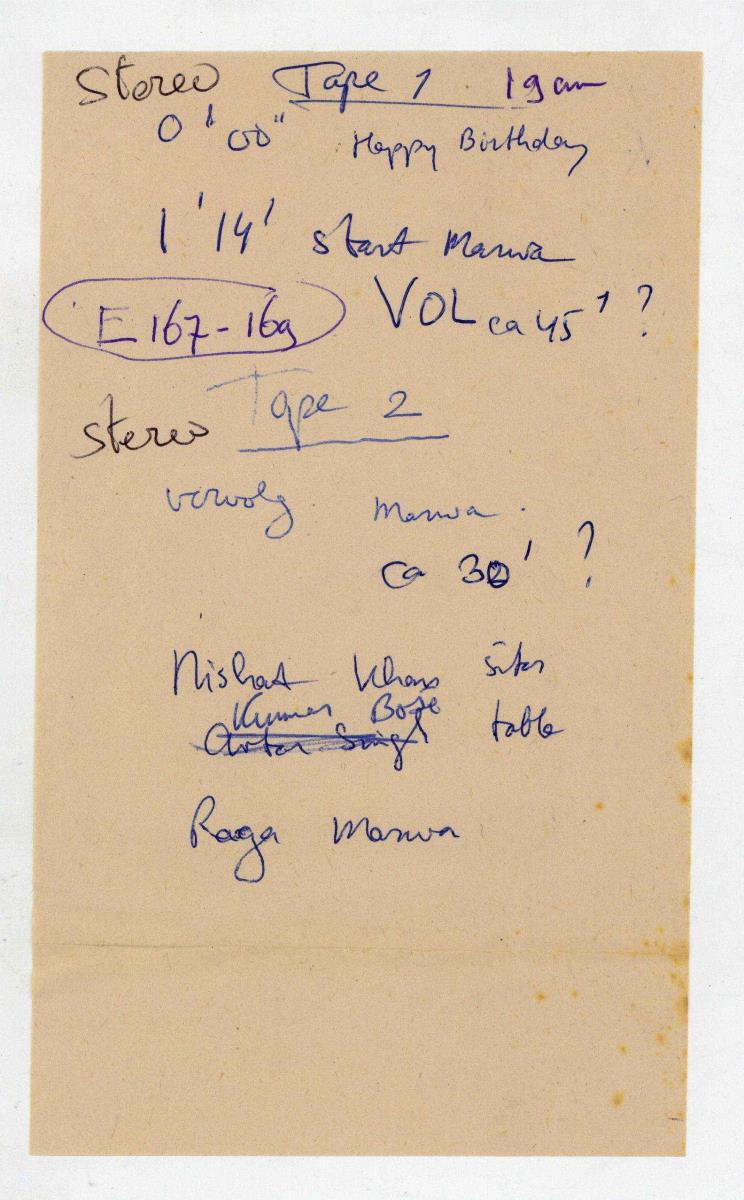 Stereo Tape 1 19 cm
0'00" Happy Birthday
1'14' start Marwa
E 167-169 VOL ca 45' ?
stereo Tape 2
vervolg Marwa.
ca 30' ?
Nishat Khan sitar
Kumar Bose
Avtar Singh tabla
Raga Marwa